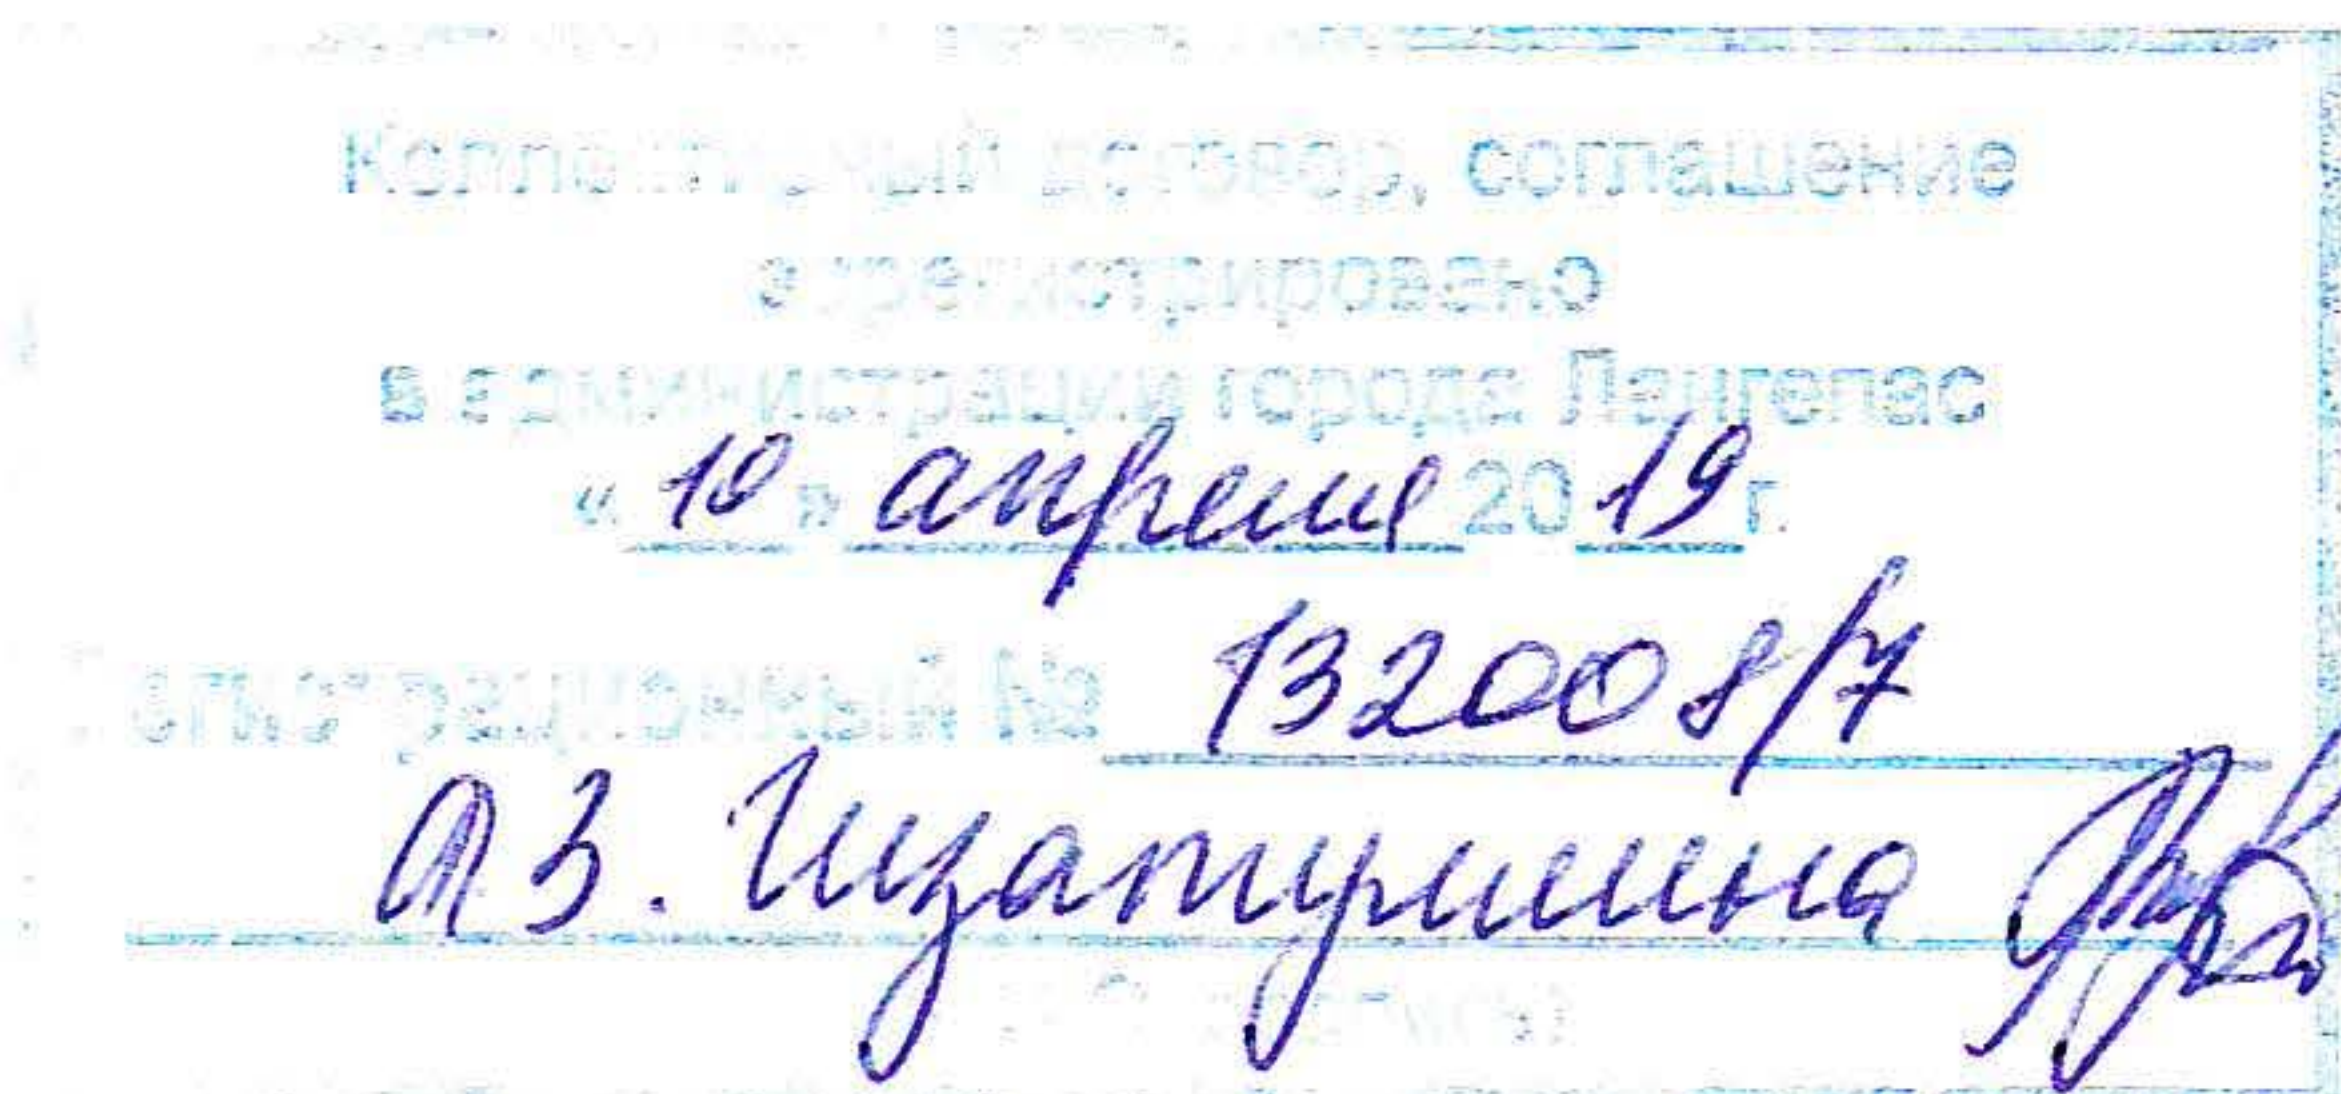 Коллективный договор, соглашение
зарегистрировано
в администрации города Лангепас
« 10 » апреля 20 19 г.
Регистрационный № 132008/7